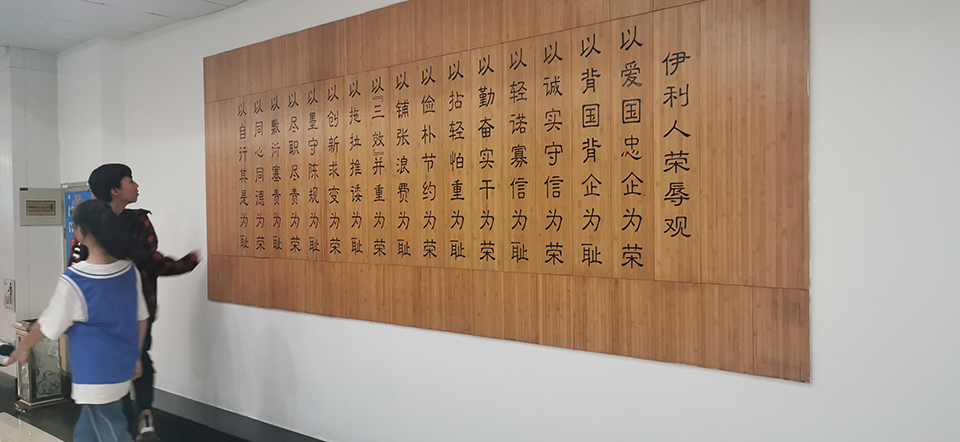 伊利人荣辱观
以爱国忠企为荣
以背国背企为耻
以诚实守信为荣
以轻诺寡信为耻
以勤奋实干为荣
以拈轻怕重为耻
以俭朴节约为荣
以铺张浪费为耻
以『三效』并重为荣
以拖拉推诿为耻
以创新求变为荣
以墨守陈规为耻
以尽职尽责为荣
以敷衍塞责为耻
以同心同德为荣
以自行其是为耻